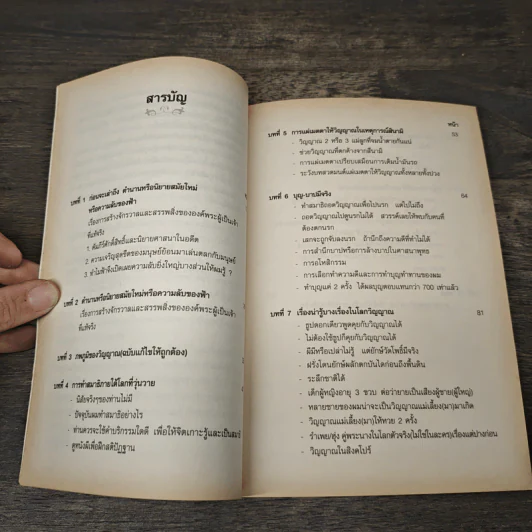 สารบัญ
บทที่ 1 ก่อนจะเล่าถึง ตำนานหรือนิยายสมัยใหม่
หรือความลับของฟ้า
เรื่องการสร้างจักรวาลและสรรพสิ่งขององค์พระผู้เป็นเจ้า
ที่แท้จริง
1. คัมภีร์ศักดิ์สิทธิ์และนิยายศาสนาในอดีต
2. ความเจริญสุดขีดของมนุษย์ย้อนมาเล่นตลกกับมนุษย์
3. ทำไมฟ้าจึงเปิดเผยความลับยิ่งใหญ่บางส่วนให้ผมรู้ ?
บทที่ 2 ตำนานหรือนิยายสมัยใหม่หรือความลับของฟ้า
เรื่องการสร้างจักรวาลและสรรพสิ่งขององค์พระผู้เป็นเจ้า
ที่แท้จริง
บทที่ 3 ภพภูมิของวิญญาณ(ฉบับแก้ไขให้ถูกต้อง)
บทที่ 4 การทำสมาธิภายใต้โลกที่วุ่นวาย
- นิสัยจริงๆของท่านไม่มี
- ปัจจุบันผมทำสมาธิอย่างไร
- ท่านควรจะใช้คำบริกรรมใดดี เพื่อให้จิตเกาะรู้และเป็นสมาธิ
- ดูหนังผีเพื่อฝึกสติปัฏฐาน
หน้า
บทที่ 5 การแผ่เมตตาให้วิญญาณในเหตุการณ์สึนามิ 53
- วิญญาณ 2 หรือ 3 แม่ลูกที่จมน้ำตายกับแน่
- ช่วยวิญญาณที่ตกค้างจากสึนามิ
- การแผ่เมตตาเปรียบเสมือนการเติมน้ำมันรถ
- ระวังบทสวดมนต์แผ่เมตตาให้วิญญาณทั้งหลายทั้งปวง
บทที่ 6 บุญ-บาปมีจริง 64
- ทำสมาธิถอดวิญญาณเพื่อไปนรก แต่ไปไม่ถึง
- ถอดวิญญาณไปดูนรกไม่ได้ สวรรค์เลยให้พบกับคนที่
ต้องตกนรก
- เลกจะถูกจับลงนรก ถ้านึกถึงความดีที่ทำไม่ได้
- การสำนึกบาปหรือการล้างบาปในศาสนาพุทธ
- การอโหสิกรรม
- การเลือกทำความดีและการทำบุญทำทานของผม
- ทำบุญแค่ 2 ครั้ง ได้ผลบุญตอบแทนกว่า 700 เท่าแล้ว
บทที่ 7 เรื่องน่ารู้บางเรื่องในโลกวิญญาณ 81
- ธูปดอกเดียวพูดคุยกับวิญญาณได้
- ไม่ต้องใช้ธูปก็คุยกับวิญญาณได้
- ผีมีหรือเปล่าไม่รู้ แต่ยักษ์วัดโพธิ์มีจริง
- ฝรั่งโดนยักษ์ผลักตกบันไดก่อนถึงพื้นดิน
- ระลึกชาติได้
- เด็กผู้หญิงอายุ 3 ขวบ ต่อว่ายายเป็นเสียงผู้ชาย(ผู้ใหญ่)
- หลายชายของผมน่าจะเป็นวิญญาณแม่เลี้ยง(มา)มาเกิด
- วิญญาณแม่เลี้ยง(มา)ให้หวย 2 ครั้ง
- วิญญาณในสิงคโปร์